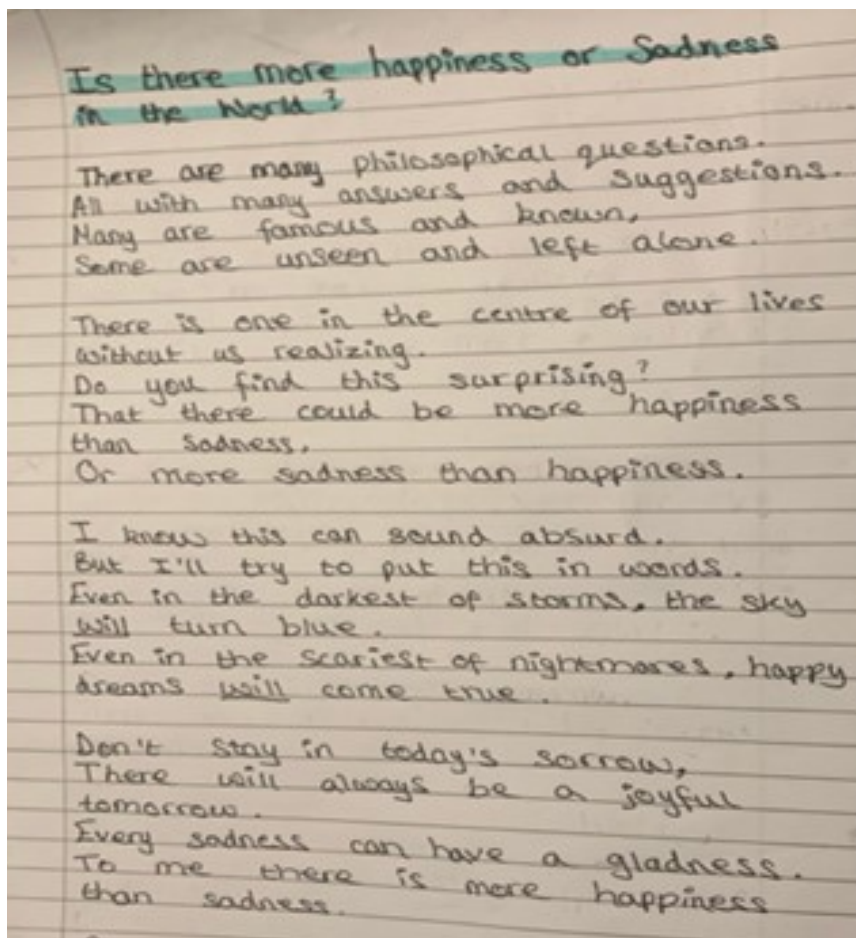 Is there more happiness or Sadness
in the World?
There are many philosophical questions.
All with many answers and suggestions.
Many are famous and known,
Some are unseen and left alone.
There is one in the centre of our lives
without us realizing.
Do you find this surprising?
That there could be more happiness
than sadness.
Or more sadness than happiness.
I know this can sound absurd.
But I'll try to put this in words.
Even in the darkest of storms, the sky
will turn blue.
Even in the scariest of nightmares, happy
dreams will come true.
Don't stay in today's sorrow,
There will always be a joyful
tomorrow.
Every sadness can have a gladness.
To me there is more happiness
than sadness.